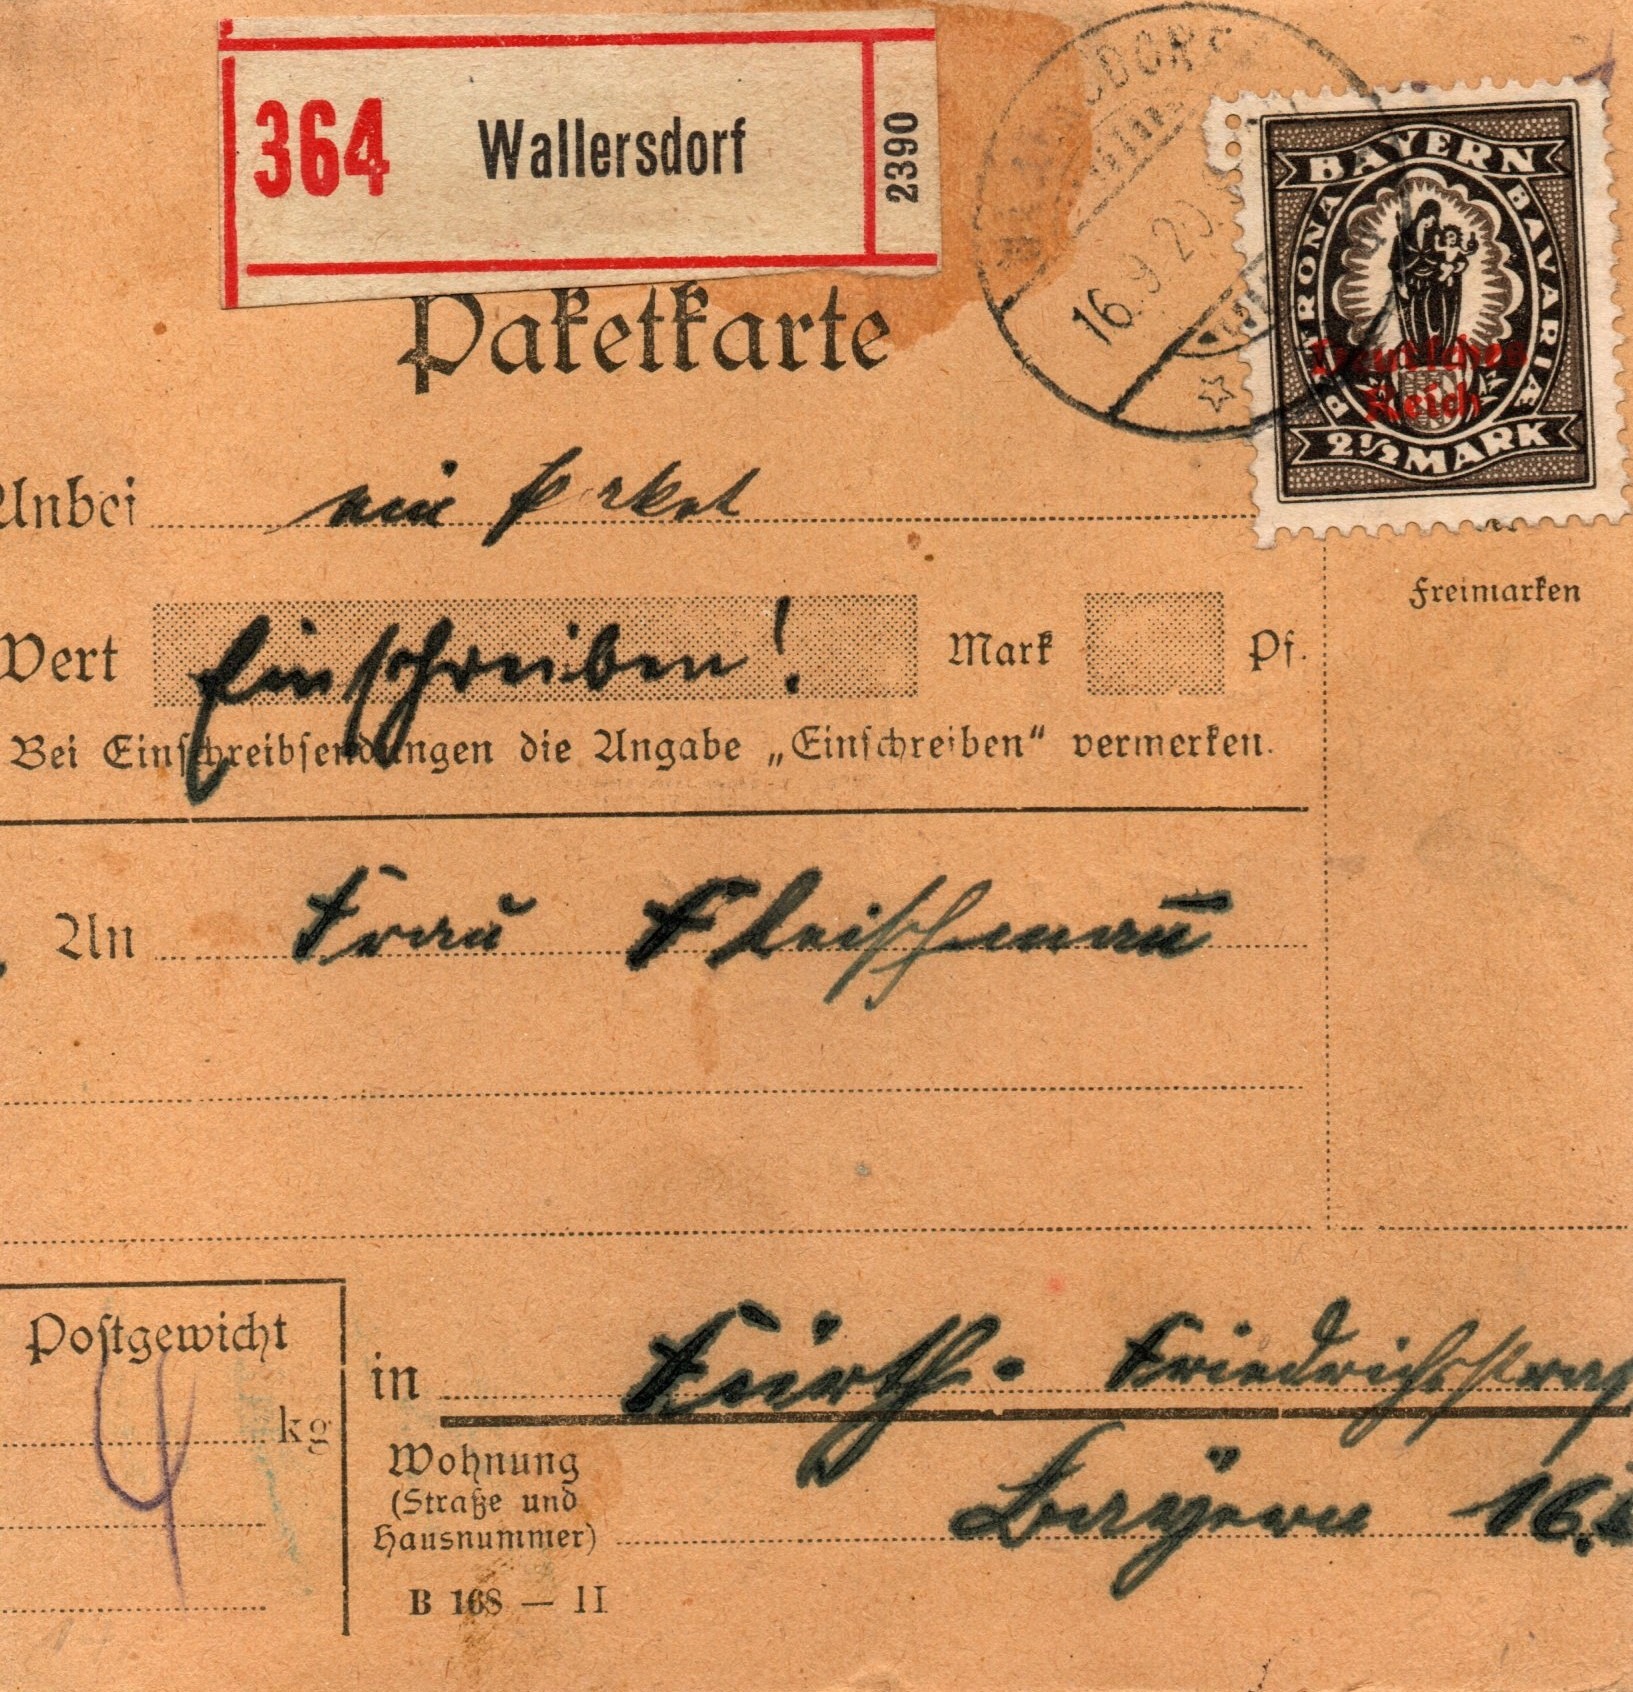 364 Wallersdorf 2390
16.9.20.
BAYERN
PATRONA BAVARIAE
Deutsches
Reich
2½ MARK
Paketkarte
Anbei ein Paket
Freimarken
Wert Einschreiben! Mark Pf.
Bei Einschreibsendungen die Angabe „Einschreiben“ vermerken.
An Frau Fleischmann̅
Postgewicht
4 kg
in Fürth. Friedrichstraß
Wohnung
(Straße und
Hausnummer)
Bayern 16.
B 168 — II